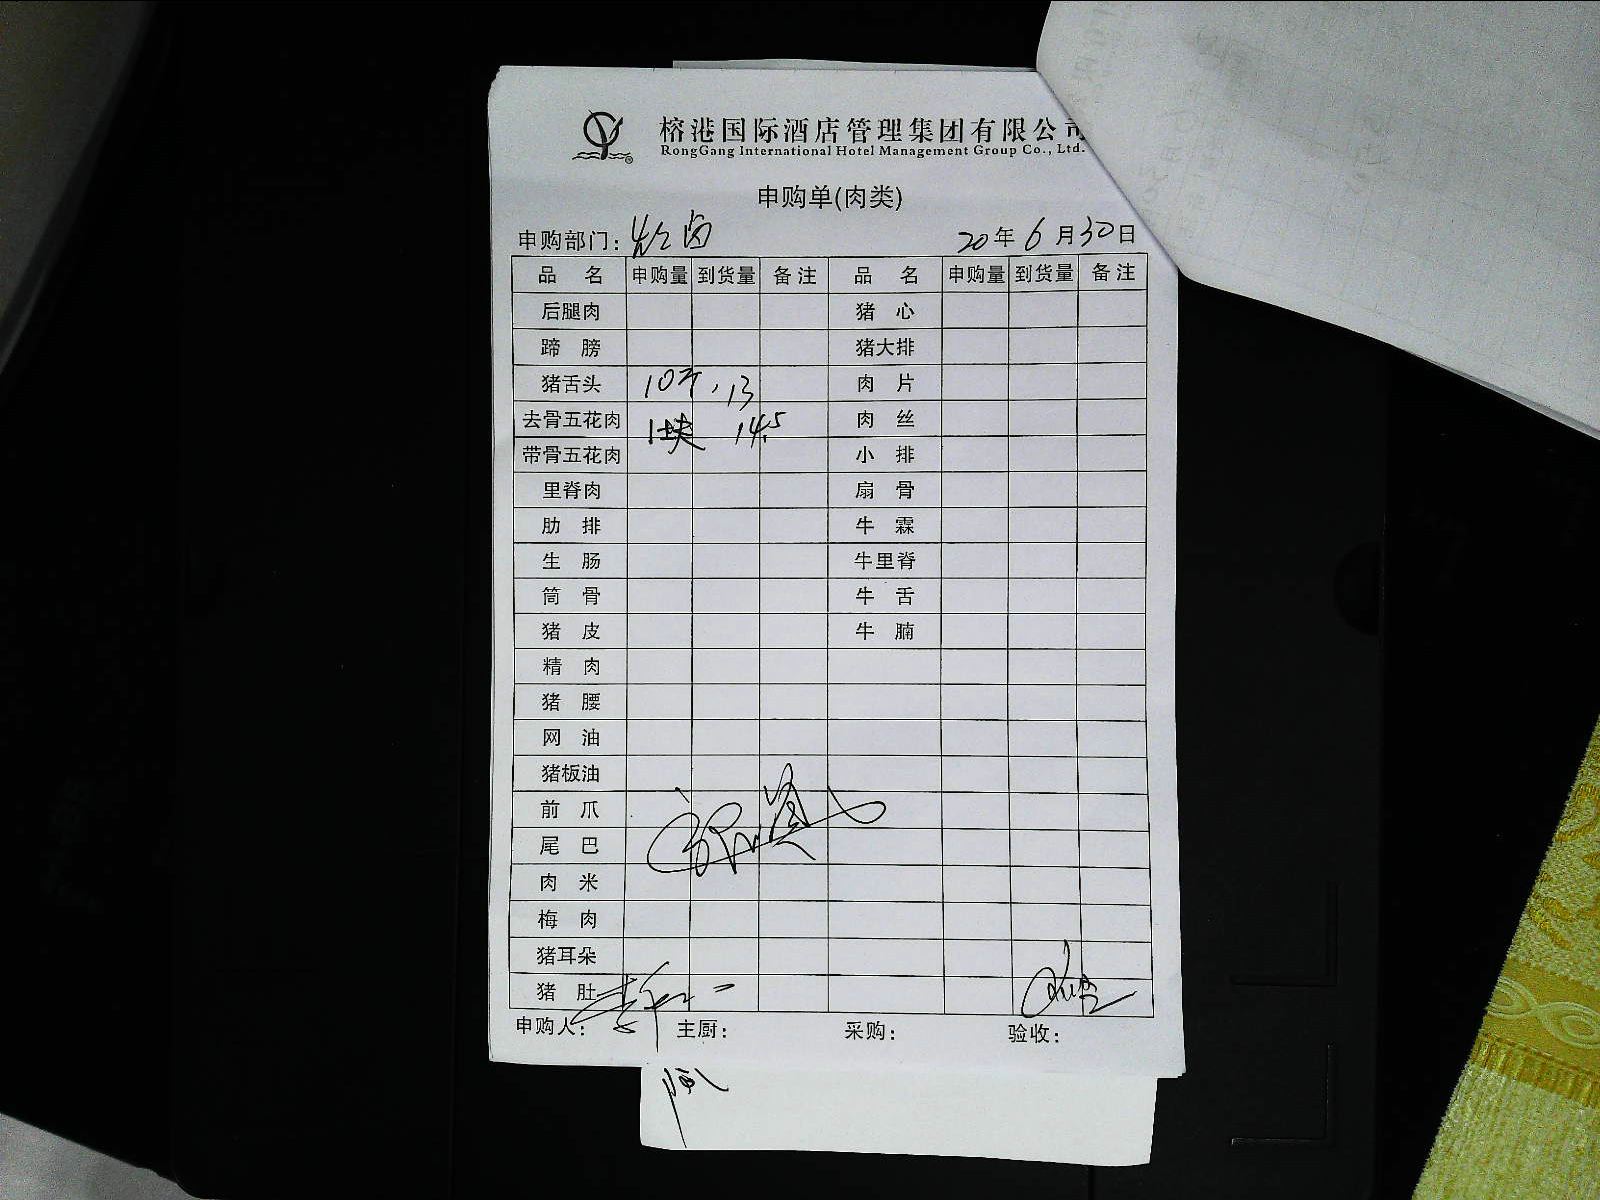 榕港国际酒店管理集团有限公司
RongGang International Hotel Management Group Co., Ltd.
申购单(肉类)
申购部门: 烧卤 20年6月30日
品 名 申购量 到货量 备注 品 名 申购量 到货量 备注
后腿肉 猪 心
蹄 膀 猪大排
猪舌头 10斤 13 肉 片
去骨五花肉 1块 14.5 肉 丝
带骨五花肉 小 排
里脊肉 扇 骨
肋 排 牛 霖
生 肠 牛里脊
筒 骨 牛 舌
猪 皮 牛 腩
精 肉
猪 腰
网 油
猪板油
前 爪
尾 巴
肉 米
梅 肉
猪耳朵
猪 肚
申购人: 主厨: 采购: 验收: